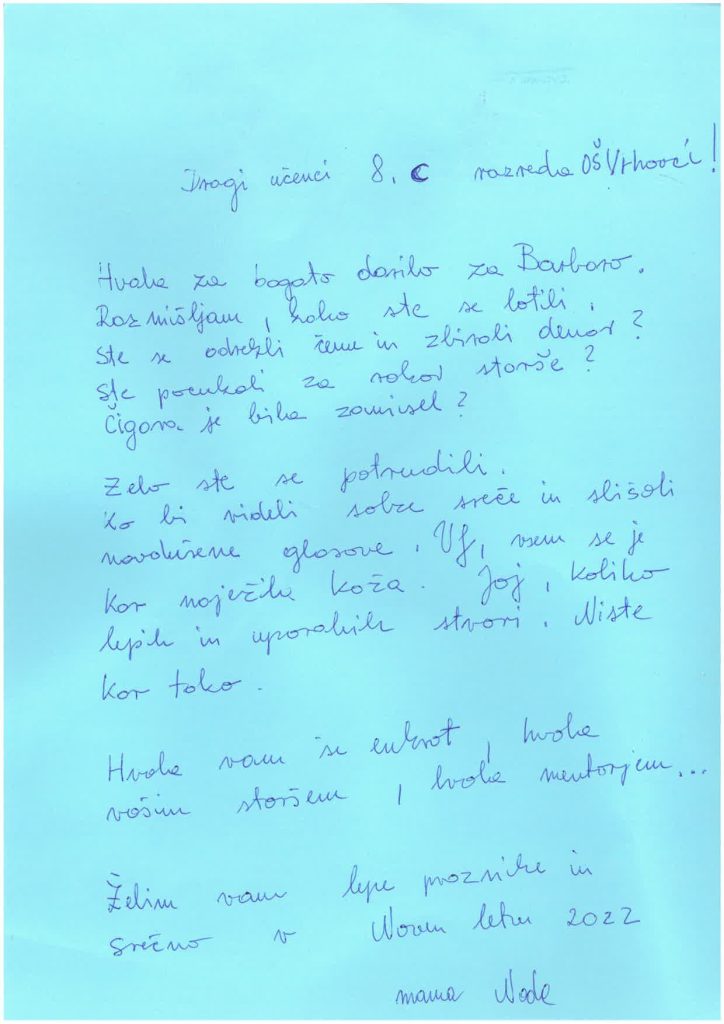 Dragi učenci 8. C razreda OŠ Vrhovci!
Hvala za bogato darilo za Barbaro.
Razmišljam, kako ste se lotili.
Ste se odrekli čemu in zbirali denar?
Ste pocukali za rokav starše?
Čigava je bila zamisel?
Zelo ste se potrudili.
Ko bi videli solze sreče in slišali
navdušene glasove. Uf, vsem se je
kar naježila koža. Joj, koliko
lepih in uporabnih stvari. Niste
kar tako.
Hvala vam še enkrat, hvala
vašim staršem, hvala mentorjem...
Želim vam lepe praznike in
srečno v Novem letu 2022
mama Nada